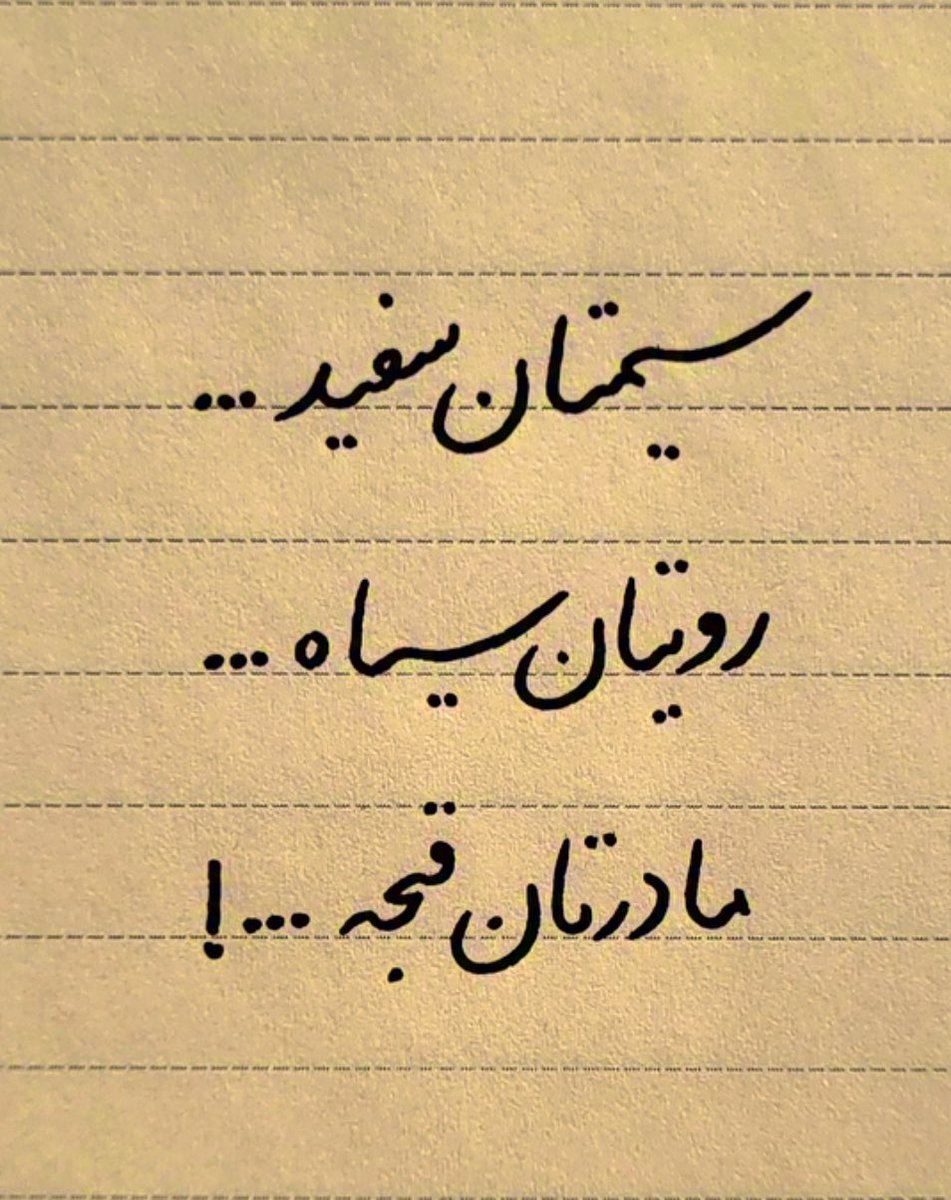 سیمتان سفید...
رویتان سیاه...
مادرتان قحبه...!